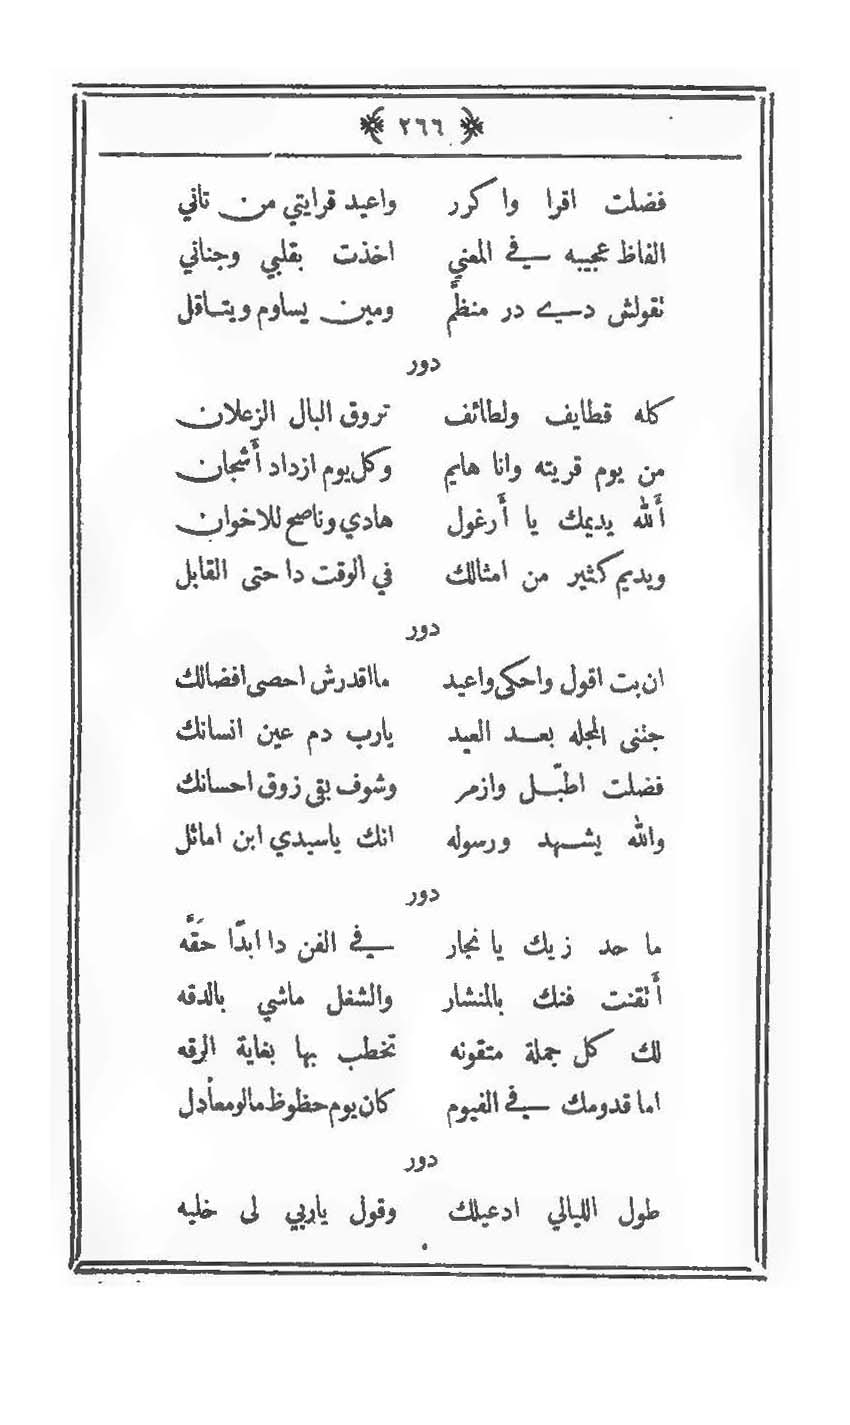 ﴿ ٢٦٦ ﴾
فضلت اقرا واكرر واعيد قرايتي من تاني
الفاظ عجيبه في المعني اخذت بقلبي وجناني
تقولش دي در منظَّم ومين يساوم ويتاقل
دور
كله قطايف ولطائف تروق البال الزعلان
من يوم قريته وانا هايم وكل يوم ازداد أشجان
ألله يديمك يا أرغول هادي وناصح للاخوان
ويديم كثير من امثالك في الوقت دا حتى القابل
دور
ان بت اقول واحكى واعيد مااقدرش احصى افضالك
جتنى المجله بعد العيد يارب دم عين انسانك
فضلت اطبّل وازمر وشوف بقى زوق احسانك
والله يشهد ورسوله انك ياسيدي ابن اماثل
دور
ما حد زيك يا نجار في الفن دا ابدًا حَقَّه
أتقنت فنك بالمنشار والشغل ماشي بالدقه
لك كل جملة متقونه تخطب بها بغاية الرقه
اما قدومك في الفيوم كان يوم حظوظ مالو معأدل
دور
طول الليالي ادعيلك وقول ياربي لى خليه